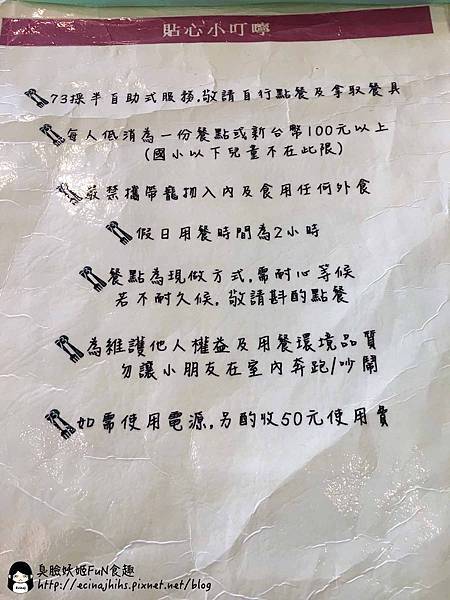 貼心小叮嚀
73採半自助式服務,敬請自行點餐及拿取餐具
每人低消為一份餐點或新台幣100元以上
(國小以下兒童不在此限)
嚴禁攜帶寵物入內及食用任何外食
假日用餐時間為2小時
餐點為現做方式,需耐心等候
若不耐久候,敬請斟酌點餐
為維護他人權益及用餐環境品質
勿讓小朋友在室內奔跑/吵鬧
如需使用電源,另酌收50元使用費
臭臉妖姬FuN食趣
http://ecinajhihs.pixnet.net/blog